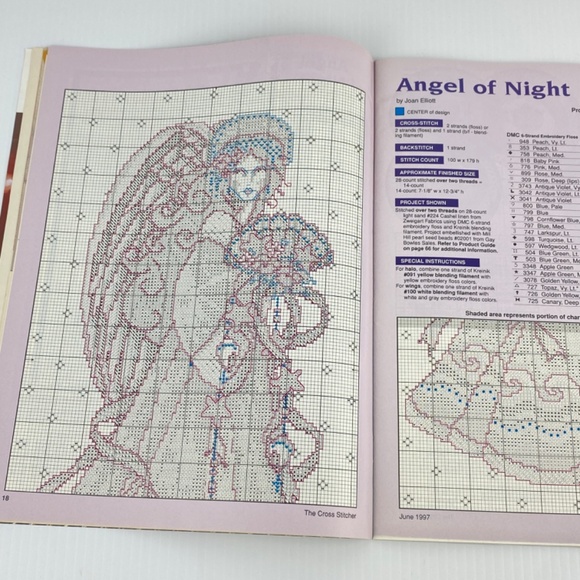 18
The Cross Stitcher
Angel of Night
by Joan Elliott
CENTER of design
CROSS-STITCH 2 strands (floss) or
2 strands (floss) and 1 strand (b/f - blend-
ing filament)
BACKSTITCH 1 strand
STITCH COUNT 100 w x 179 h
APPROXIMATE FINISHED SIZE
28-count stitched over two threads =
14-count
14-count: 7-1/8" w x 12-3/4" h
PROJECT SHOWN
Stitched over two threads on 28-count
light sand #224 Cashel linen from
Zweigart Fabrics using DMC 6-strand
embroidery floss and Kreinik blending
filament. Project embellished with Mill
Hill pearl seed beads #02001 from Gay
Bowles Sales. Refer to Product Guide
on page 66 for additional information.
SPECIAL INSTRUCTIONS
For halo, combine one strand of Kreinik
#091 yellow blending filament with
yellow embroidery floss colors.
For wings, combine one strand of Kreinik
#100 white blending filament with
white and gray embroidery floss colors.
DMC 6-Strand Embroidery Floss
948 Peach, Vy. Lt.
353 Peach, Lt.
758 Peach, Med.
818 Baby Pink
776 Pink, Med.
899 Rose, Med.
309 Rose, Deep
3743 Antique Violet, V
3042 Antique Violet, L
3041 Antique Violet
800 Blue, Pale
799 Blue
798 Cornflower Blue
797 Blue, Med.
747 Larkspur, Lt.
598 Turquoise, Lt.
597 Wedgewood, Lt.
504 Blue Green, Lt.
503 Blue Green, Me
3348 Apple Green
3347 Apple Green,
3078 Golden Yellow,
727 Topaz, Vy. Lt.
726 Golden Yellow
725 Canary, Deep
Shaded area represents portion of char
June 1997